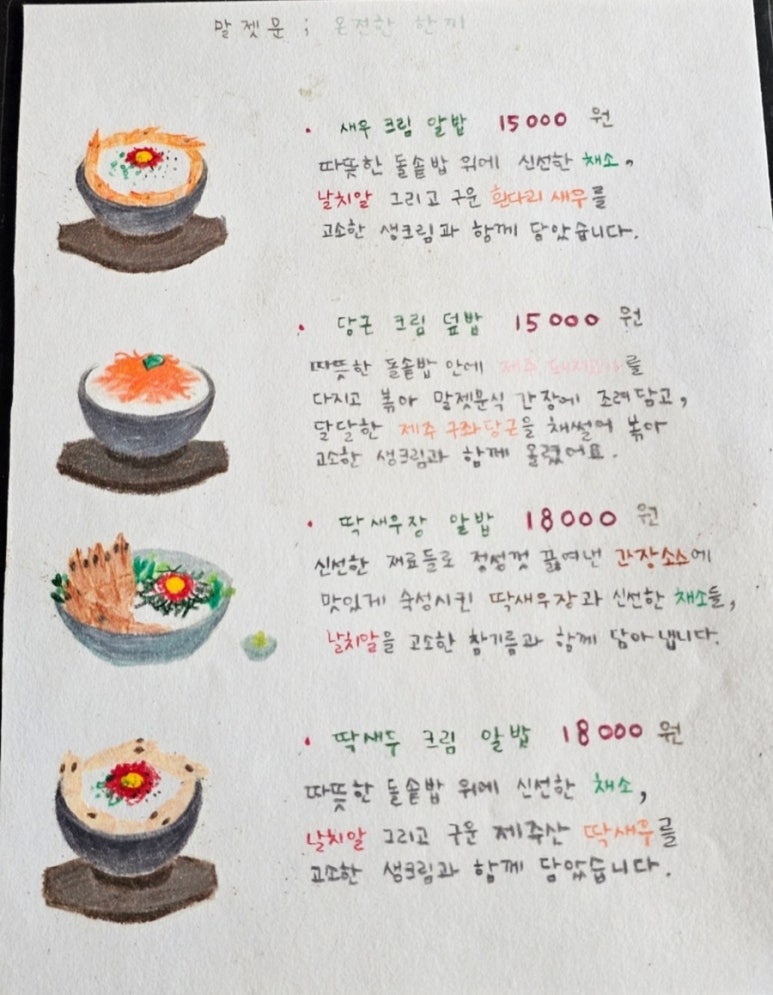 말젯문 ; 온전한 한끼
• 새우 크림 알밥 15000 원
따뜻한 돌솥밥 위에 신선한 채소,
날치알 그리고 구운 흰다리 새우를
고소한 생크림과 함께 담았습니다.
• 당근 크림 덮밥 15000 원
따뜻한 돌솥밥 안에 제주 돼지고기를
다지고 볶아 말젯문식 간장에 조려담고,
달달한 제주 구좌당근을 채썰어 볶아
고소한 생크림과 함께 올렸어요.
• 딱새우장 알밥 18000 원
신선한 재료들로 정성껏 끓여낸 간장소스에
맛있게 숙성시킨 딱새우장과 신선한 채소들,
날치알을 고소한 참기름과 함께 담아냅니다.
• 딱새우 크림 알밥 18000 원
따뜻한 돌솥밥 위에 신선한 채소,
날치알 그리고 구운 제주산 딱새우를
고소한 생크림과 함께 담았습니다.